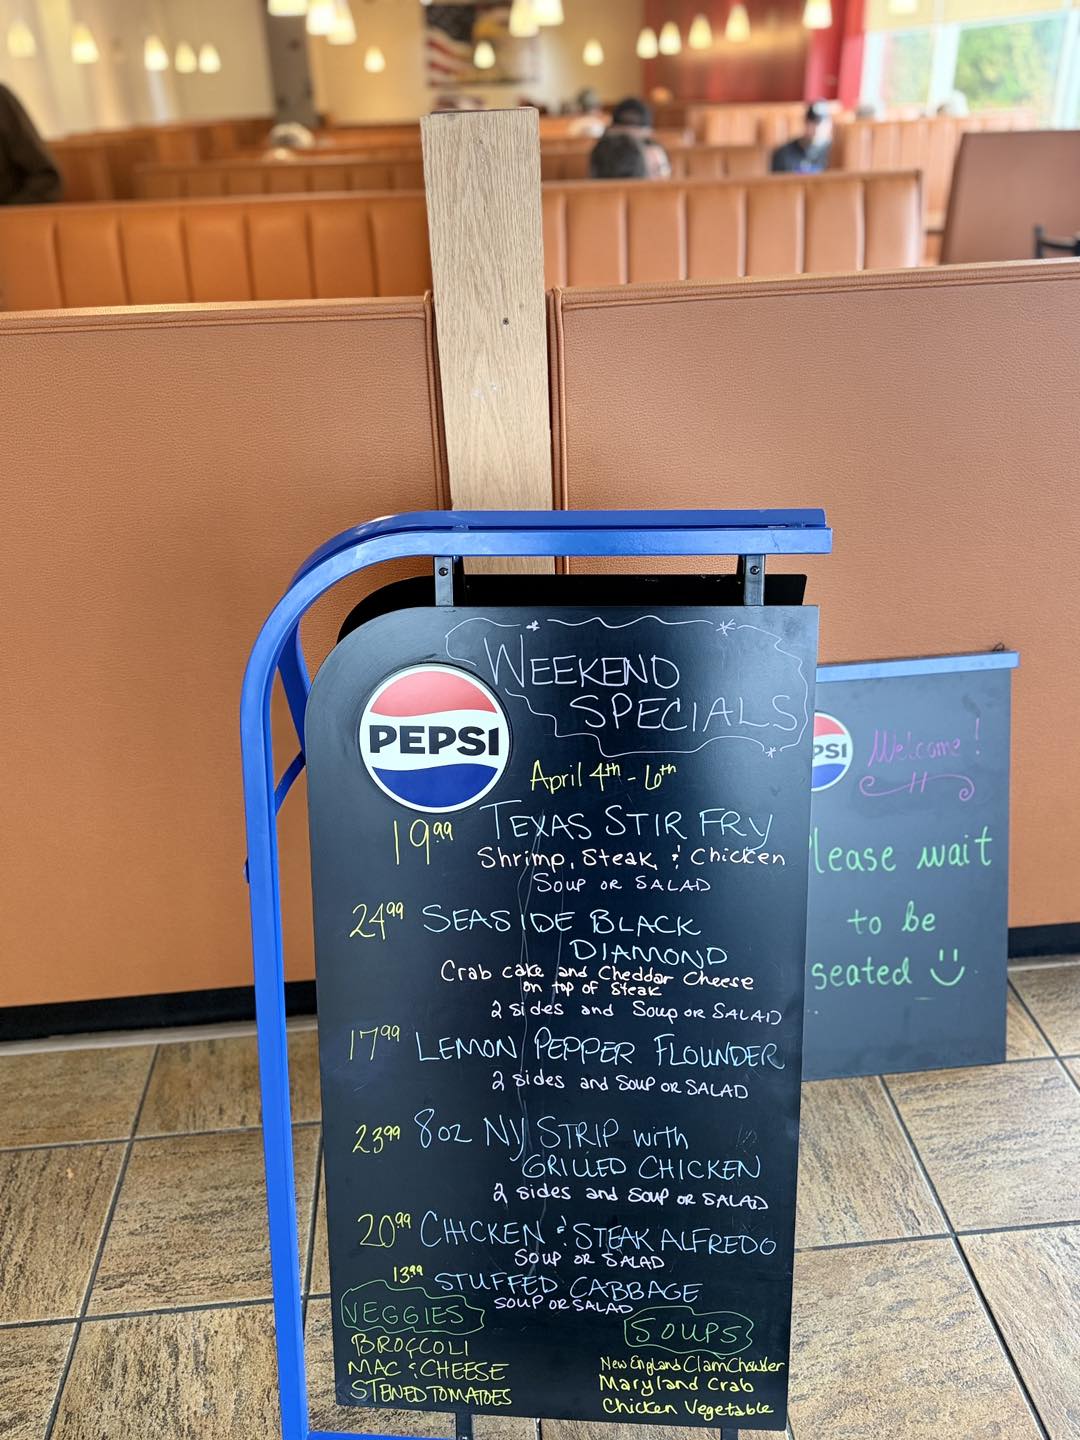 WEEKEND
SPECIALS
PEPSI
April 4th - 6th
19.99 TEXAS STIR FRY
Shrimp, Steak, & Chicken
SOUP OR SALAD
24.99 SEASIDE BLACK
DIAMOND
Crab cake and Cheddar Cheese
on top of Steak
2 sides and Soup OR SALAD
17.99 LEMON PEPPER FLOUNDER
2 sides and Soup OR SALAD
23.99 8oz NY STRIP with
GRILLED CHICKEN
2 sides and Soup OR SALAD
20.99 CHICKEN & STEAK ALFREDO
SOUP OR SALAD
13.99 STUFFED CABBAGE
SOUP OR SALAD
VEGGIES
BROCCOLI
MAC & CHEESE
STEWED TOMATOES
SOUPS
New England Clam Chowder
Maryland Crab
Chicken Vegetable
PSI
Welcome!
Please wait
to be
seated